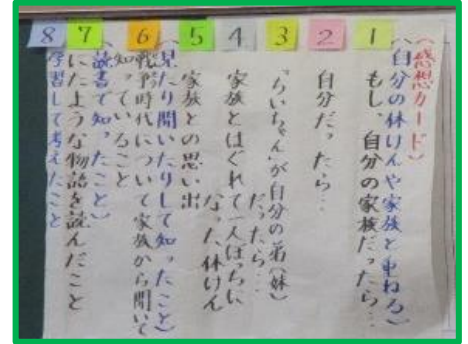 〈感想カード〉
(自分の体けんや家族と重ねる)
1 もし、自分の家族だったら…
2 自分だったら…
3 「ちいちゃん」が自分の弟(妹)
だったら…
4 家族とはぐれて一人ぼっちに
なった体けん
5 家族との思い出
(見たり聞いたりして知ったこと)
6 戦争時代について家族から聞いて
知っていること
(読書で知ったこと)
7 にたような物語を読んだこと
8 学習して考えたこと